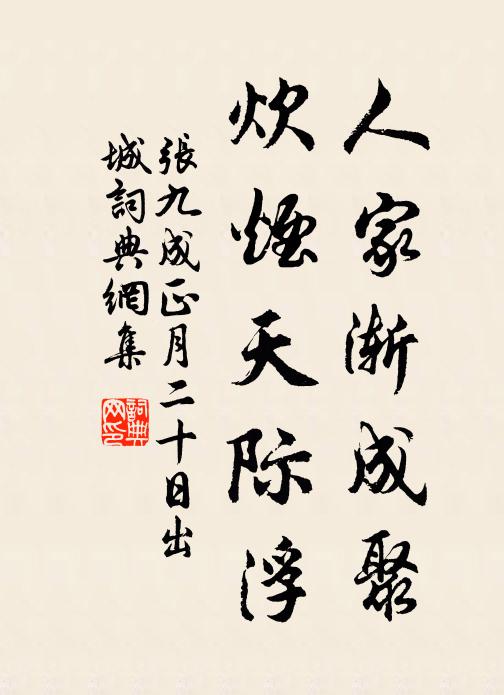 人家渐成聚
炊煙天际浮
張九成正月二十日出
城詞典網集
詞典
网印